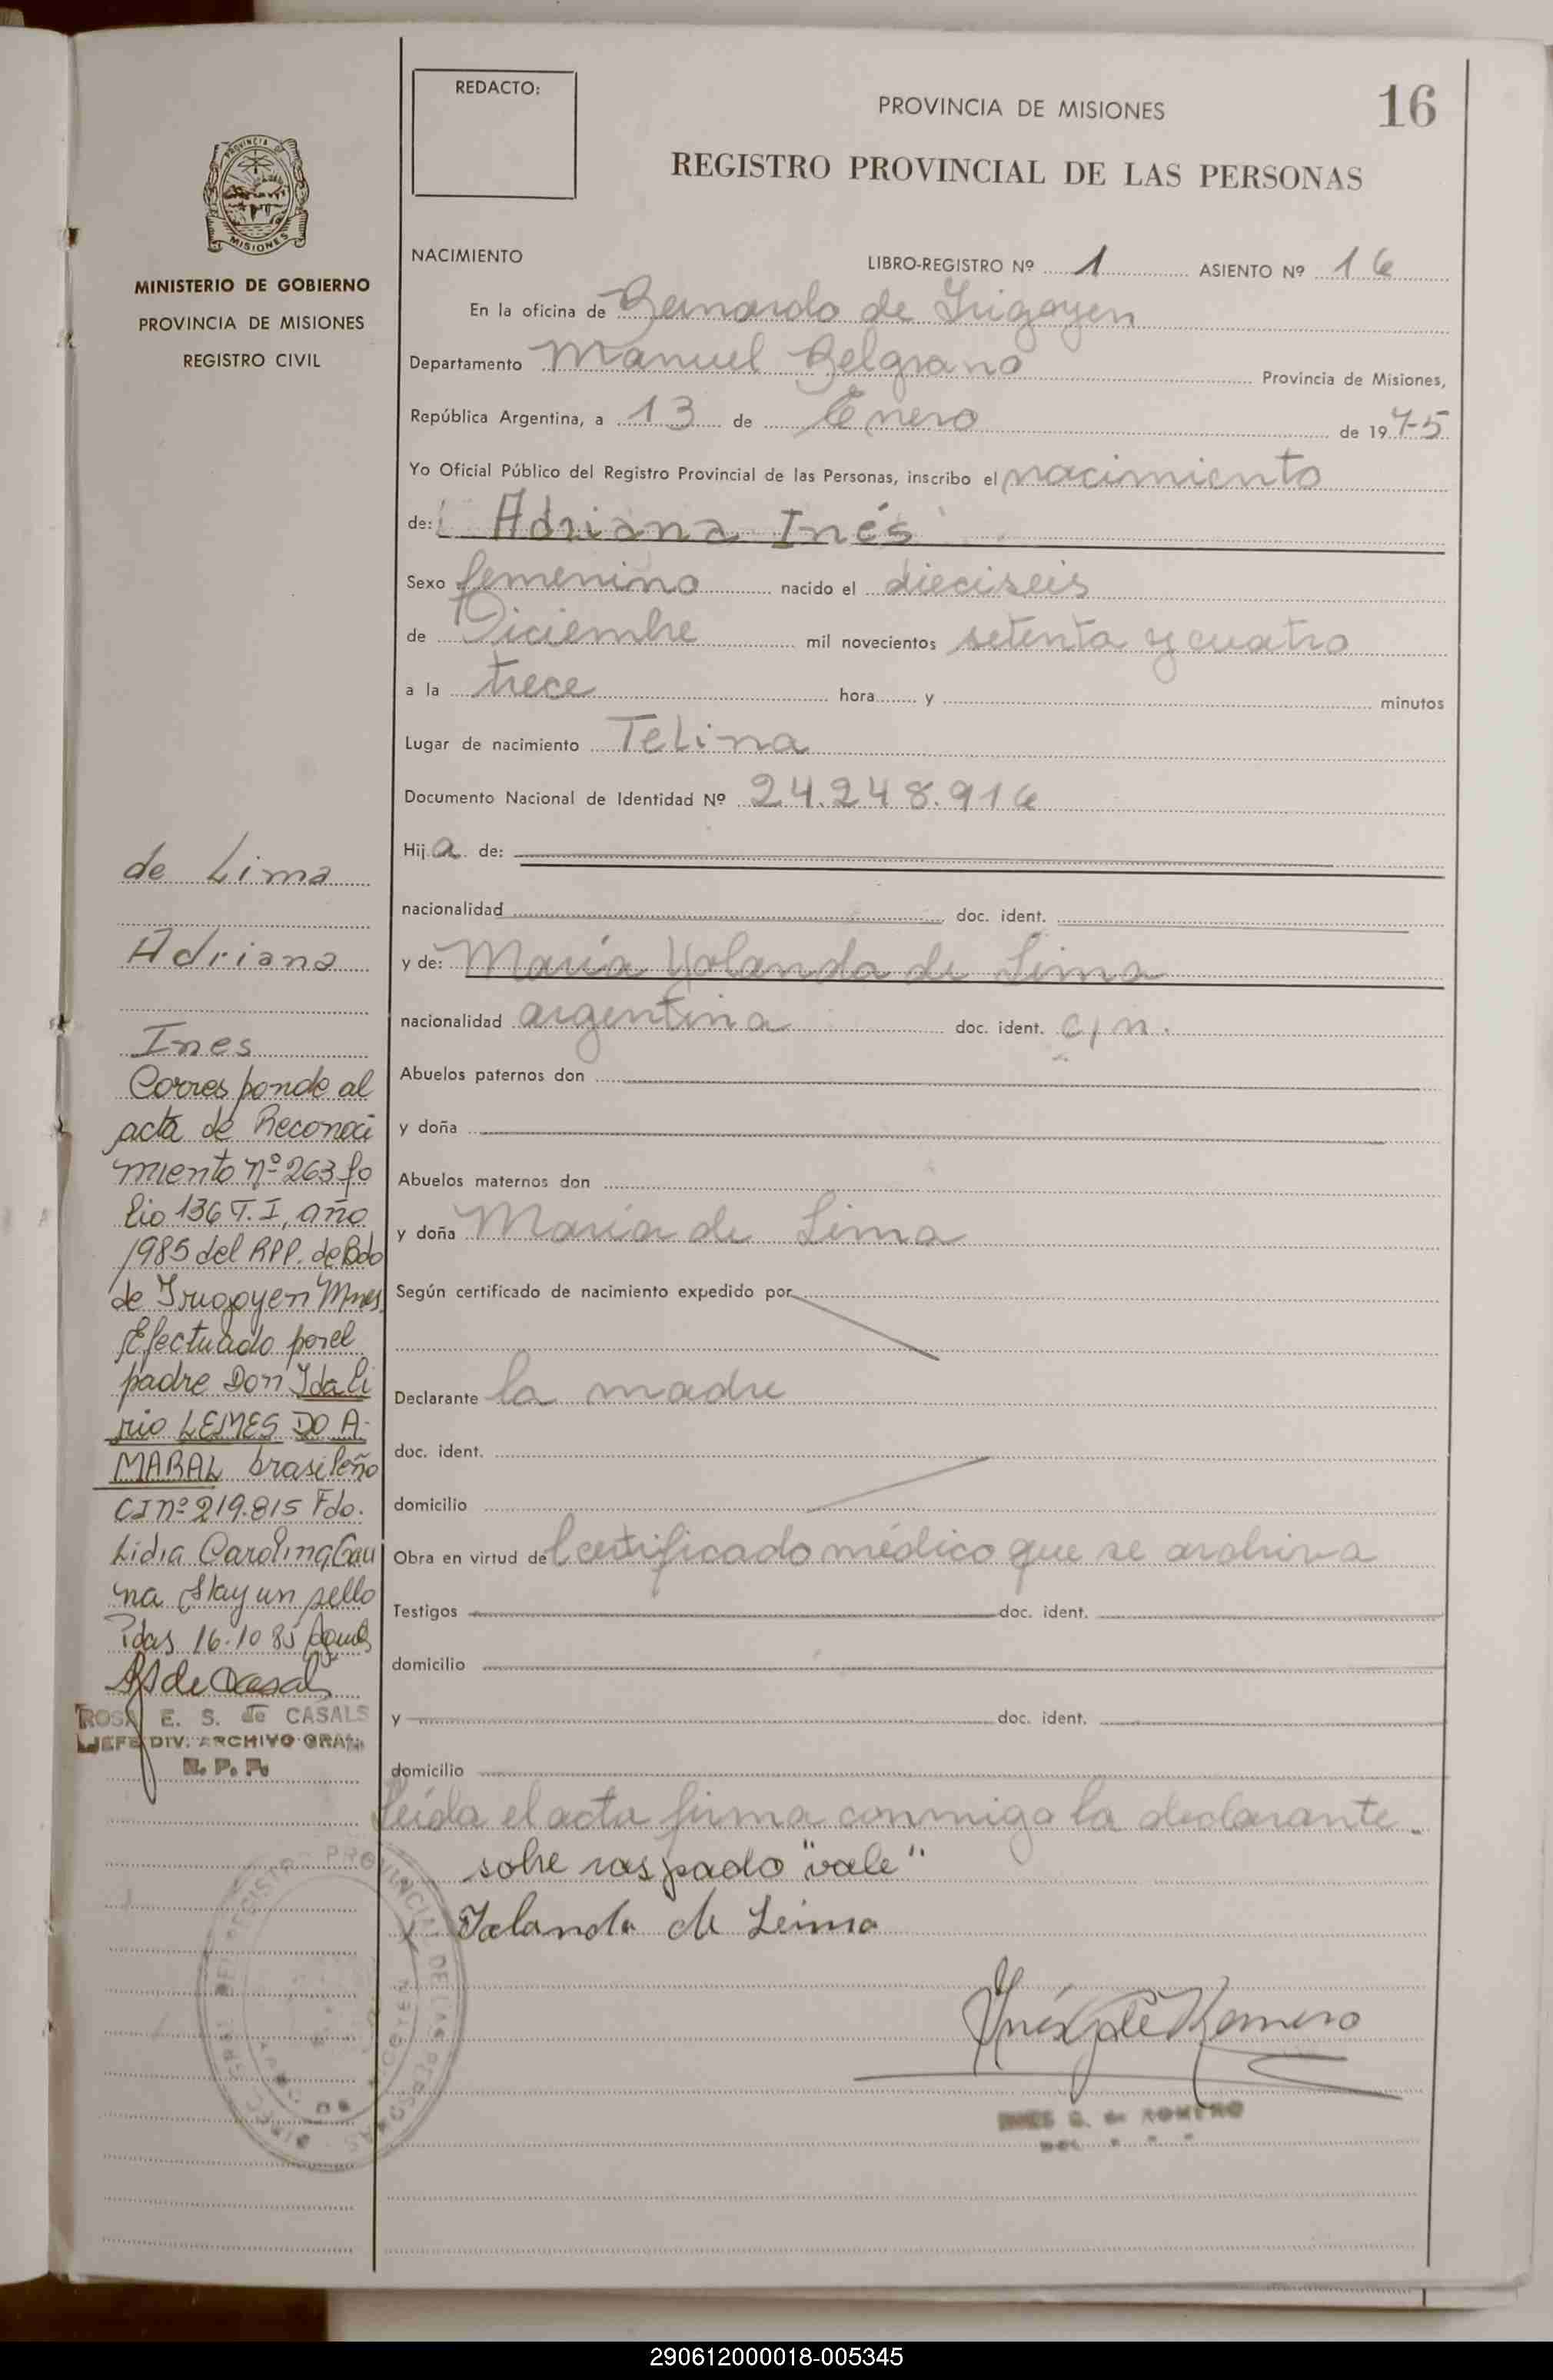 REDACTO:
PROVINCIA DE MISIONES
16
REGISTRO PROVINCIAL DE LAS PERSONAS
PROVINCIA DE
MISIONES
MINISTERIO DE GOBIERNO
PROVINCIA DE MISIONES
REGISTRO CIVIL
NACIMIENTO
LIBRO-REGISTRO Nº 1 ASIENTO Nº 16
En la oficina de Bernardo de Irigoyen
Departamento Manuel Belgrano Provincia de Misiones,
República Argentina, a 13 de Enero de 1975
Yo Oficial Público del Registro Provincial de las Personas, inscribo el nacimiento
de: Adriana Inés
Sexo femenino nacido el dieciseis
de Diciembre mil novecientos setenta y cuatro
a la trece hora y minutos
Lugar de nacimiento Telina
Documento Nacional de Identidad Nº 24.248.916
Hija de:
nacionalidad doc. ident.
y de: María Yolanda de Lima
nacionalidad argentina doc. ident. c/n.
Abuelos paternos don
y doña
Abuelos maternos don
y doña María de Lima
Según certificado de nacimiento expedido por
Declarante la madre
doc. ident.
domicilio
Obra en virtud de certificado médico que se archiva
Testigos doc. ident.
domicilio
y doc. ident.
domicilio
Leída el acta firma conmigo la declarante.
sobre raspado "vale"
Yolanda de Leima
Inés G de Romero
INES G. de ROMERO
de Lima
Adriana
Ines
Corresponde al
acta de Reconoci
miento nº 263 fo
lio 136 T.I, año
1985 del RPP. de Bdo
de Irigoyen Mnes
Efectuado por el
padre Don Idali
rio LEMES DO A-
MARAL brasileño
CI nº 219.815 Fdo.
Lidia Carolina Gau
na Hay un sello
Pdas 16-10 85
de Casals
ROSA E. S. de CASALS
JEFE DIV. ARCHIVO GRAL.
R. P. P.
290612000018-005345